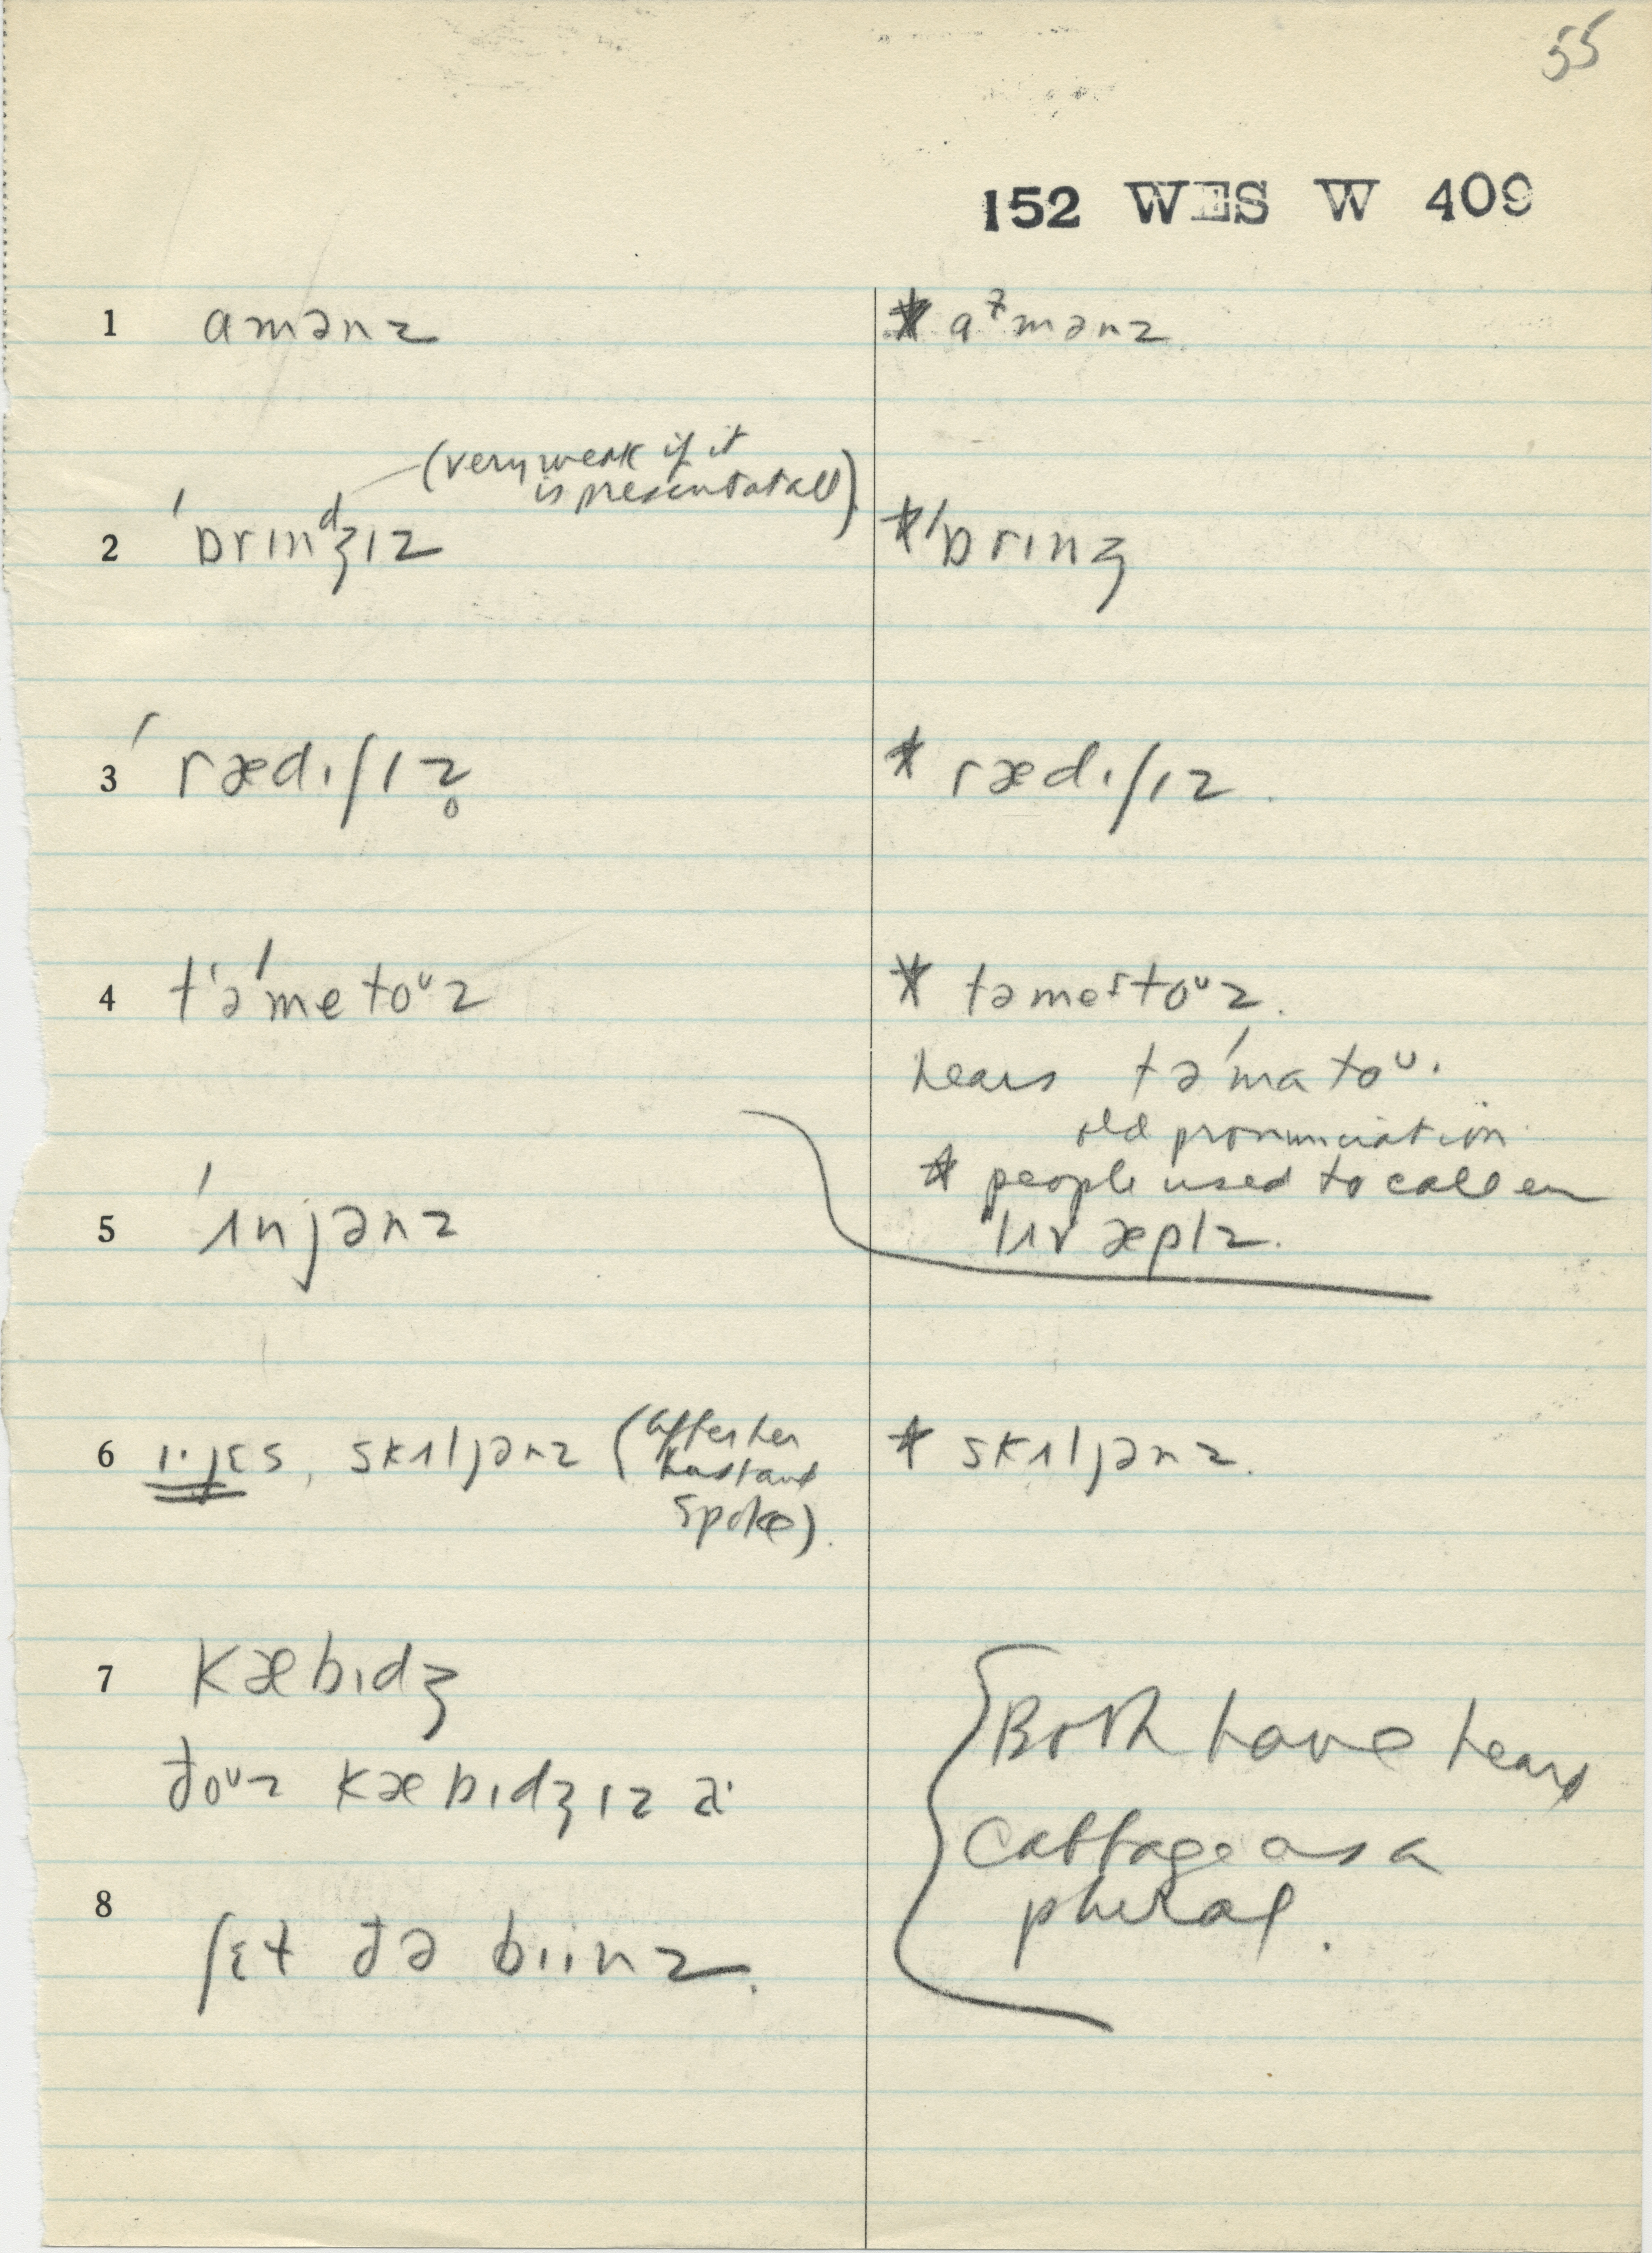 55
152 WES W 409
1 amənz
* aᶻmənz
(very weak if it
is present at all)
2 ˈbrɪnᵈʒɪz
* ˈbrɪnʒ
3 ˈrædɪʃɪz̥
* rædɪʃɪz
4 t'əˈmetoᵘz
* təmeɪtoᵘz.
hears təˈmatoᵘ.
old pronunciation
* people used to call em
lʌv æplz.
5 ˈɪnjənz
6 , skɪljənz (after her
husband
spoke).
* skɪljənz.
7 kæbɪdʒ
ðoᵘz kæbɪdʒɪz
8 ʃɛt ðə biinz.
Both have heard
Cabbage as a
plural.